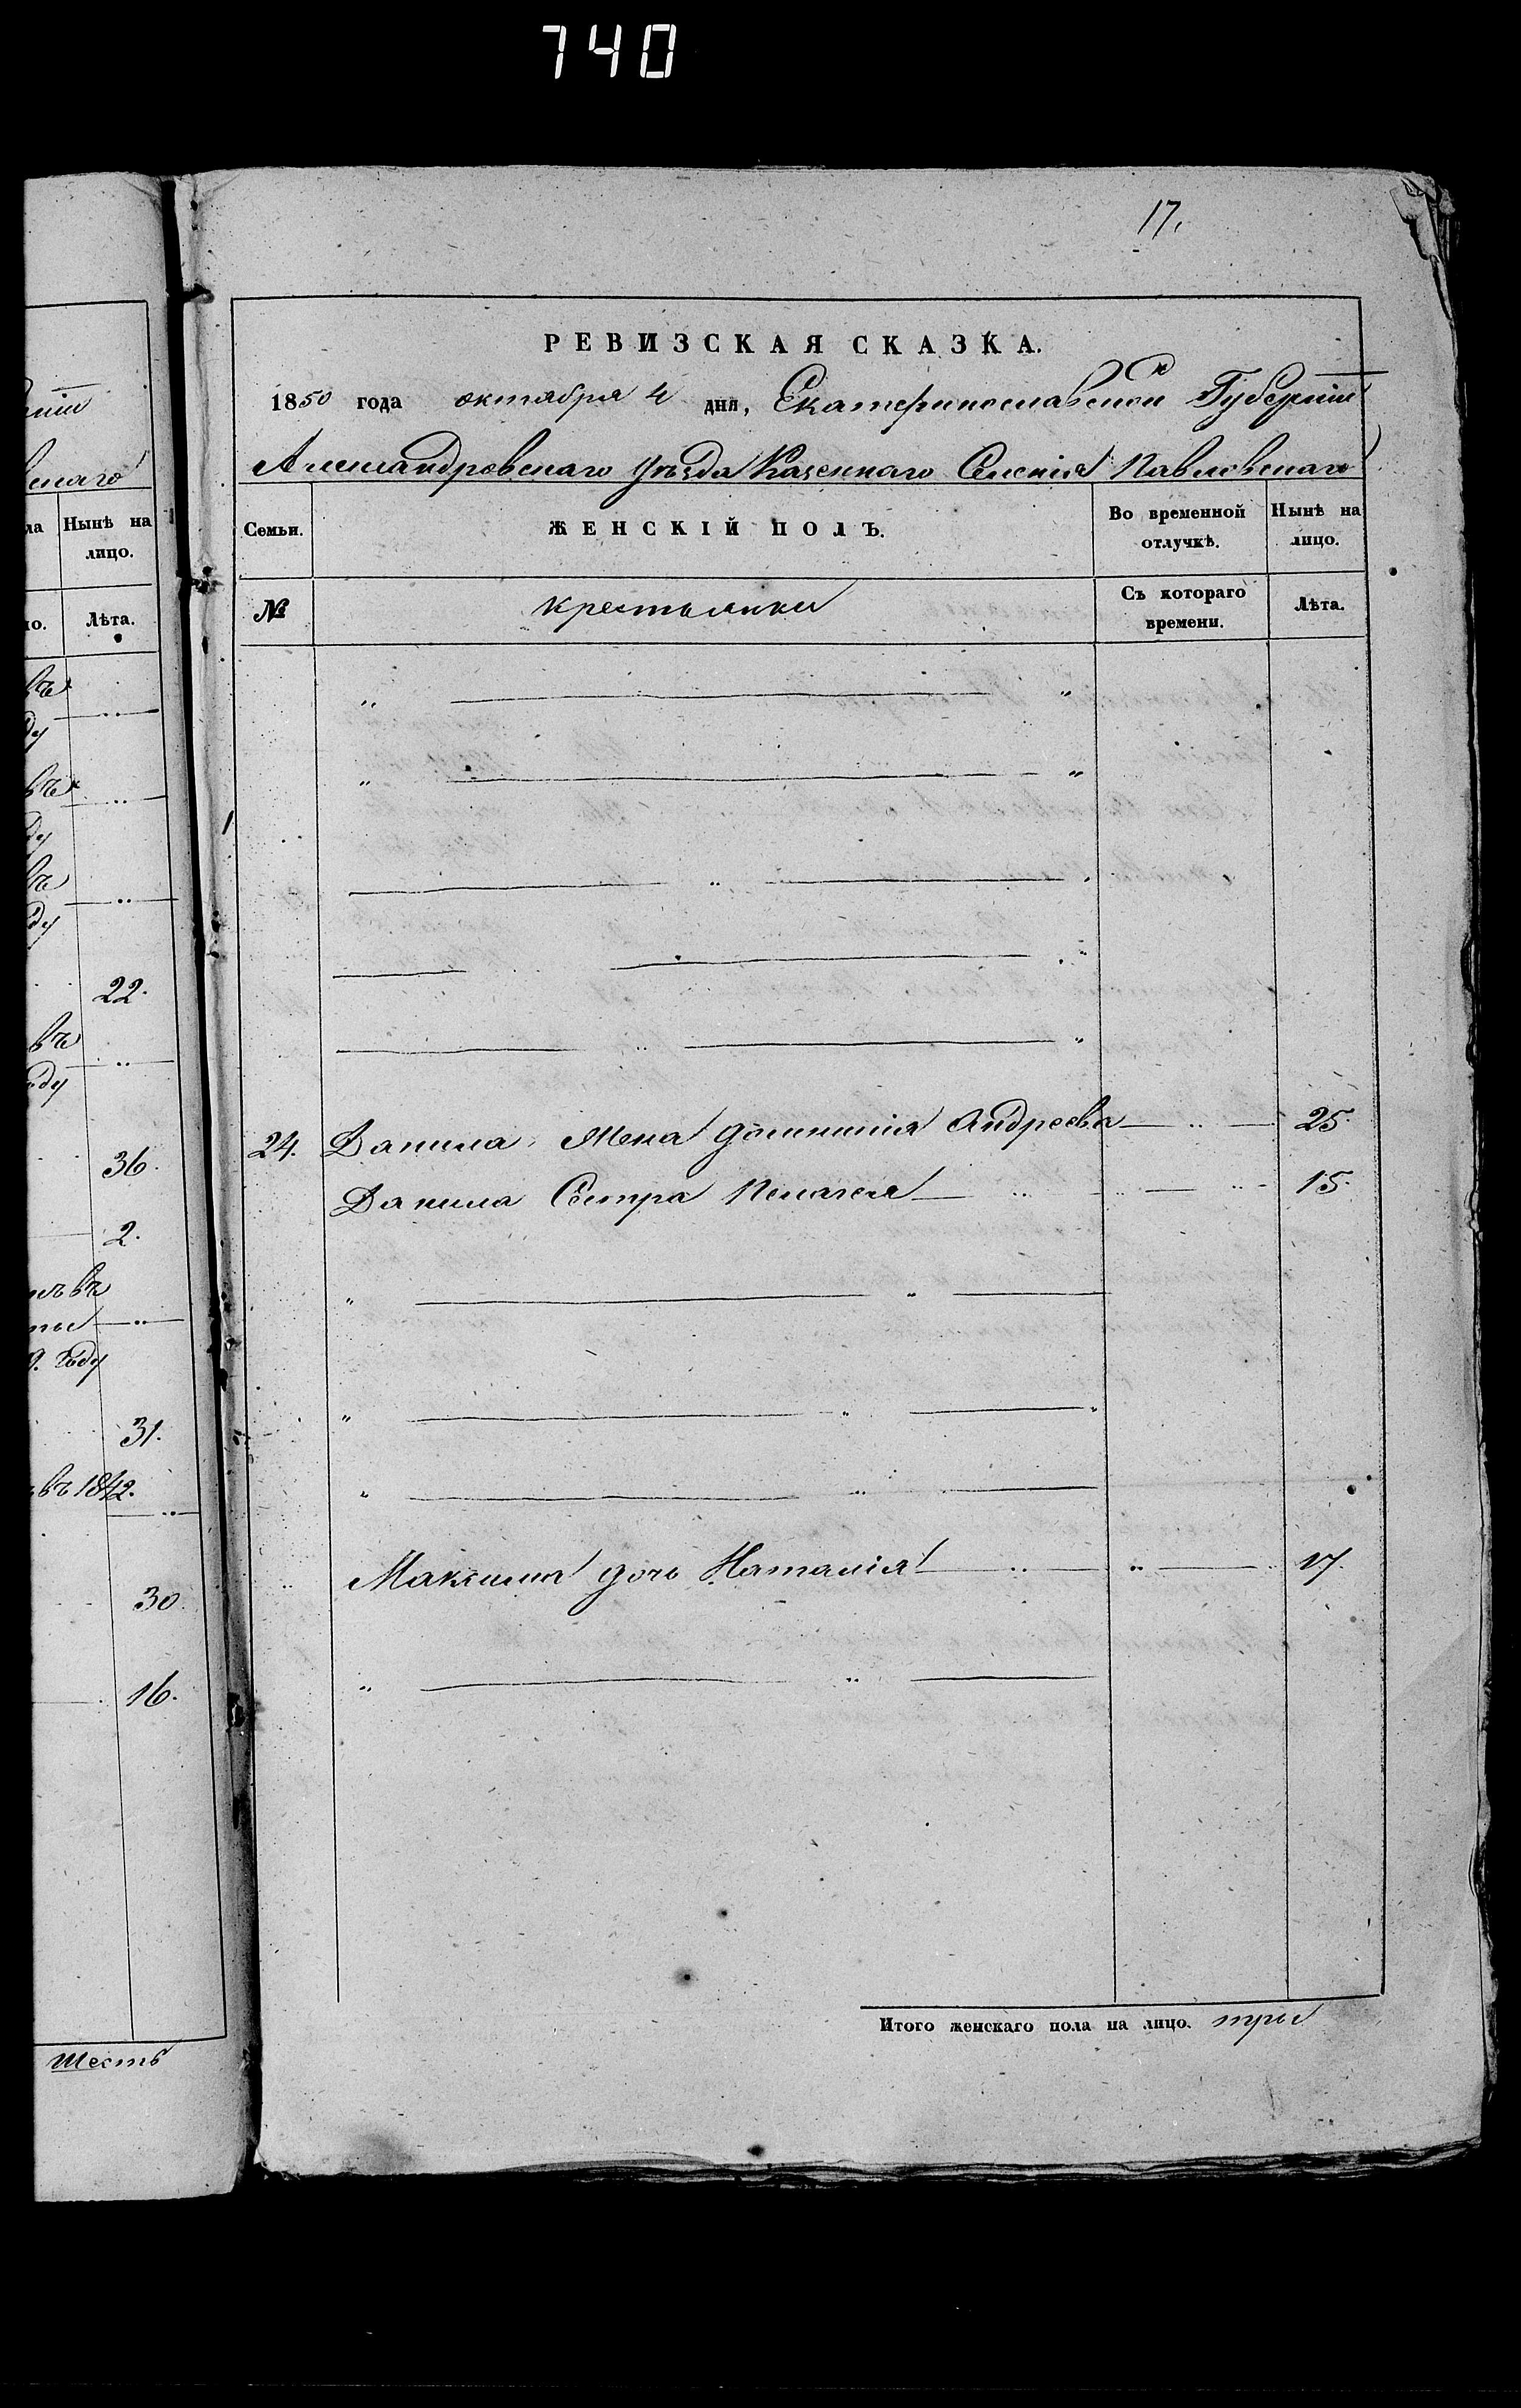 740
17.
РЕВИЗСКАЯ СКАЗКА.
1850 года октября 4 дня, Екатеринославской Губерніи
Александровскаго уѣзда Казеннаго Селенія Павловскаго
Семьи. ЖЕНСКІЙ ПОЛЪ. Во временной отлучкѣ. Нынѣ на лицо.
№ крестьянки Съ котораго времени. Лѣта.
24. Данила Жена Доминикія Андреева 25.
Данила Сестра Пелагея 15.
Максима дочь Наталія 17.
Итого женскаго пола на лицо. три
ніи
скаго
ла Нынѣ на
лицо.
но. Лѣта.
въ
ду
въ
ду
въ
ду
22.
въ
оду
36.
2.
въ
9. году
31.
въ 1842.
30
16.
шесть